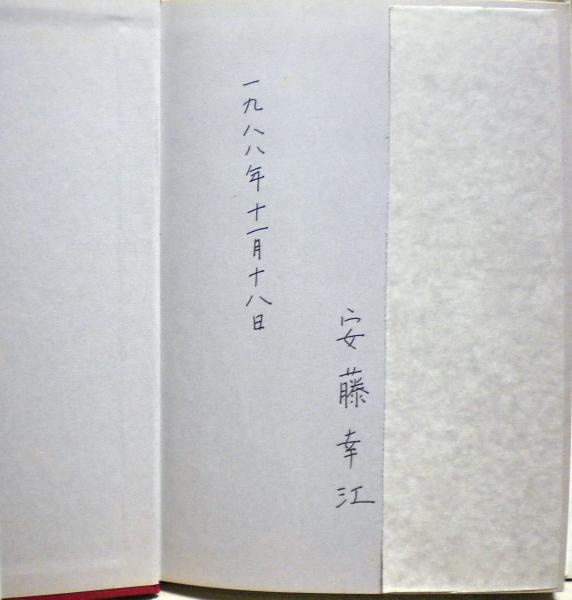 安藤幸江
一九八八年十一月十八日